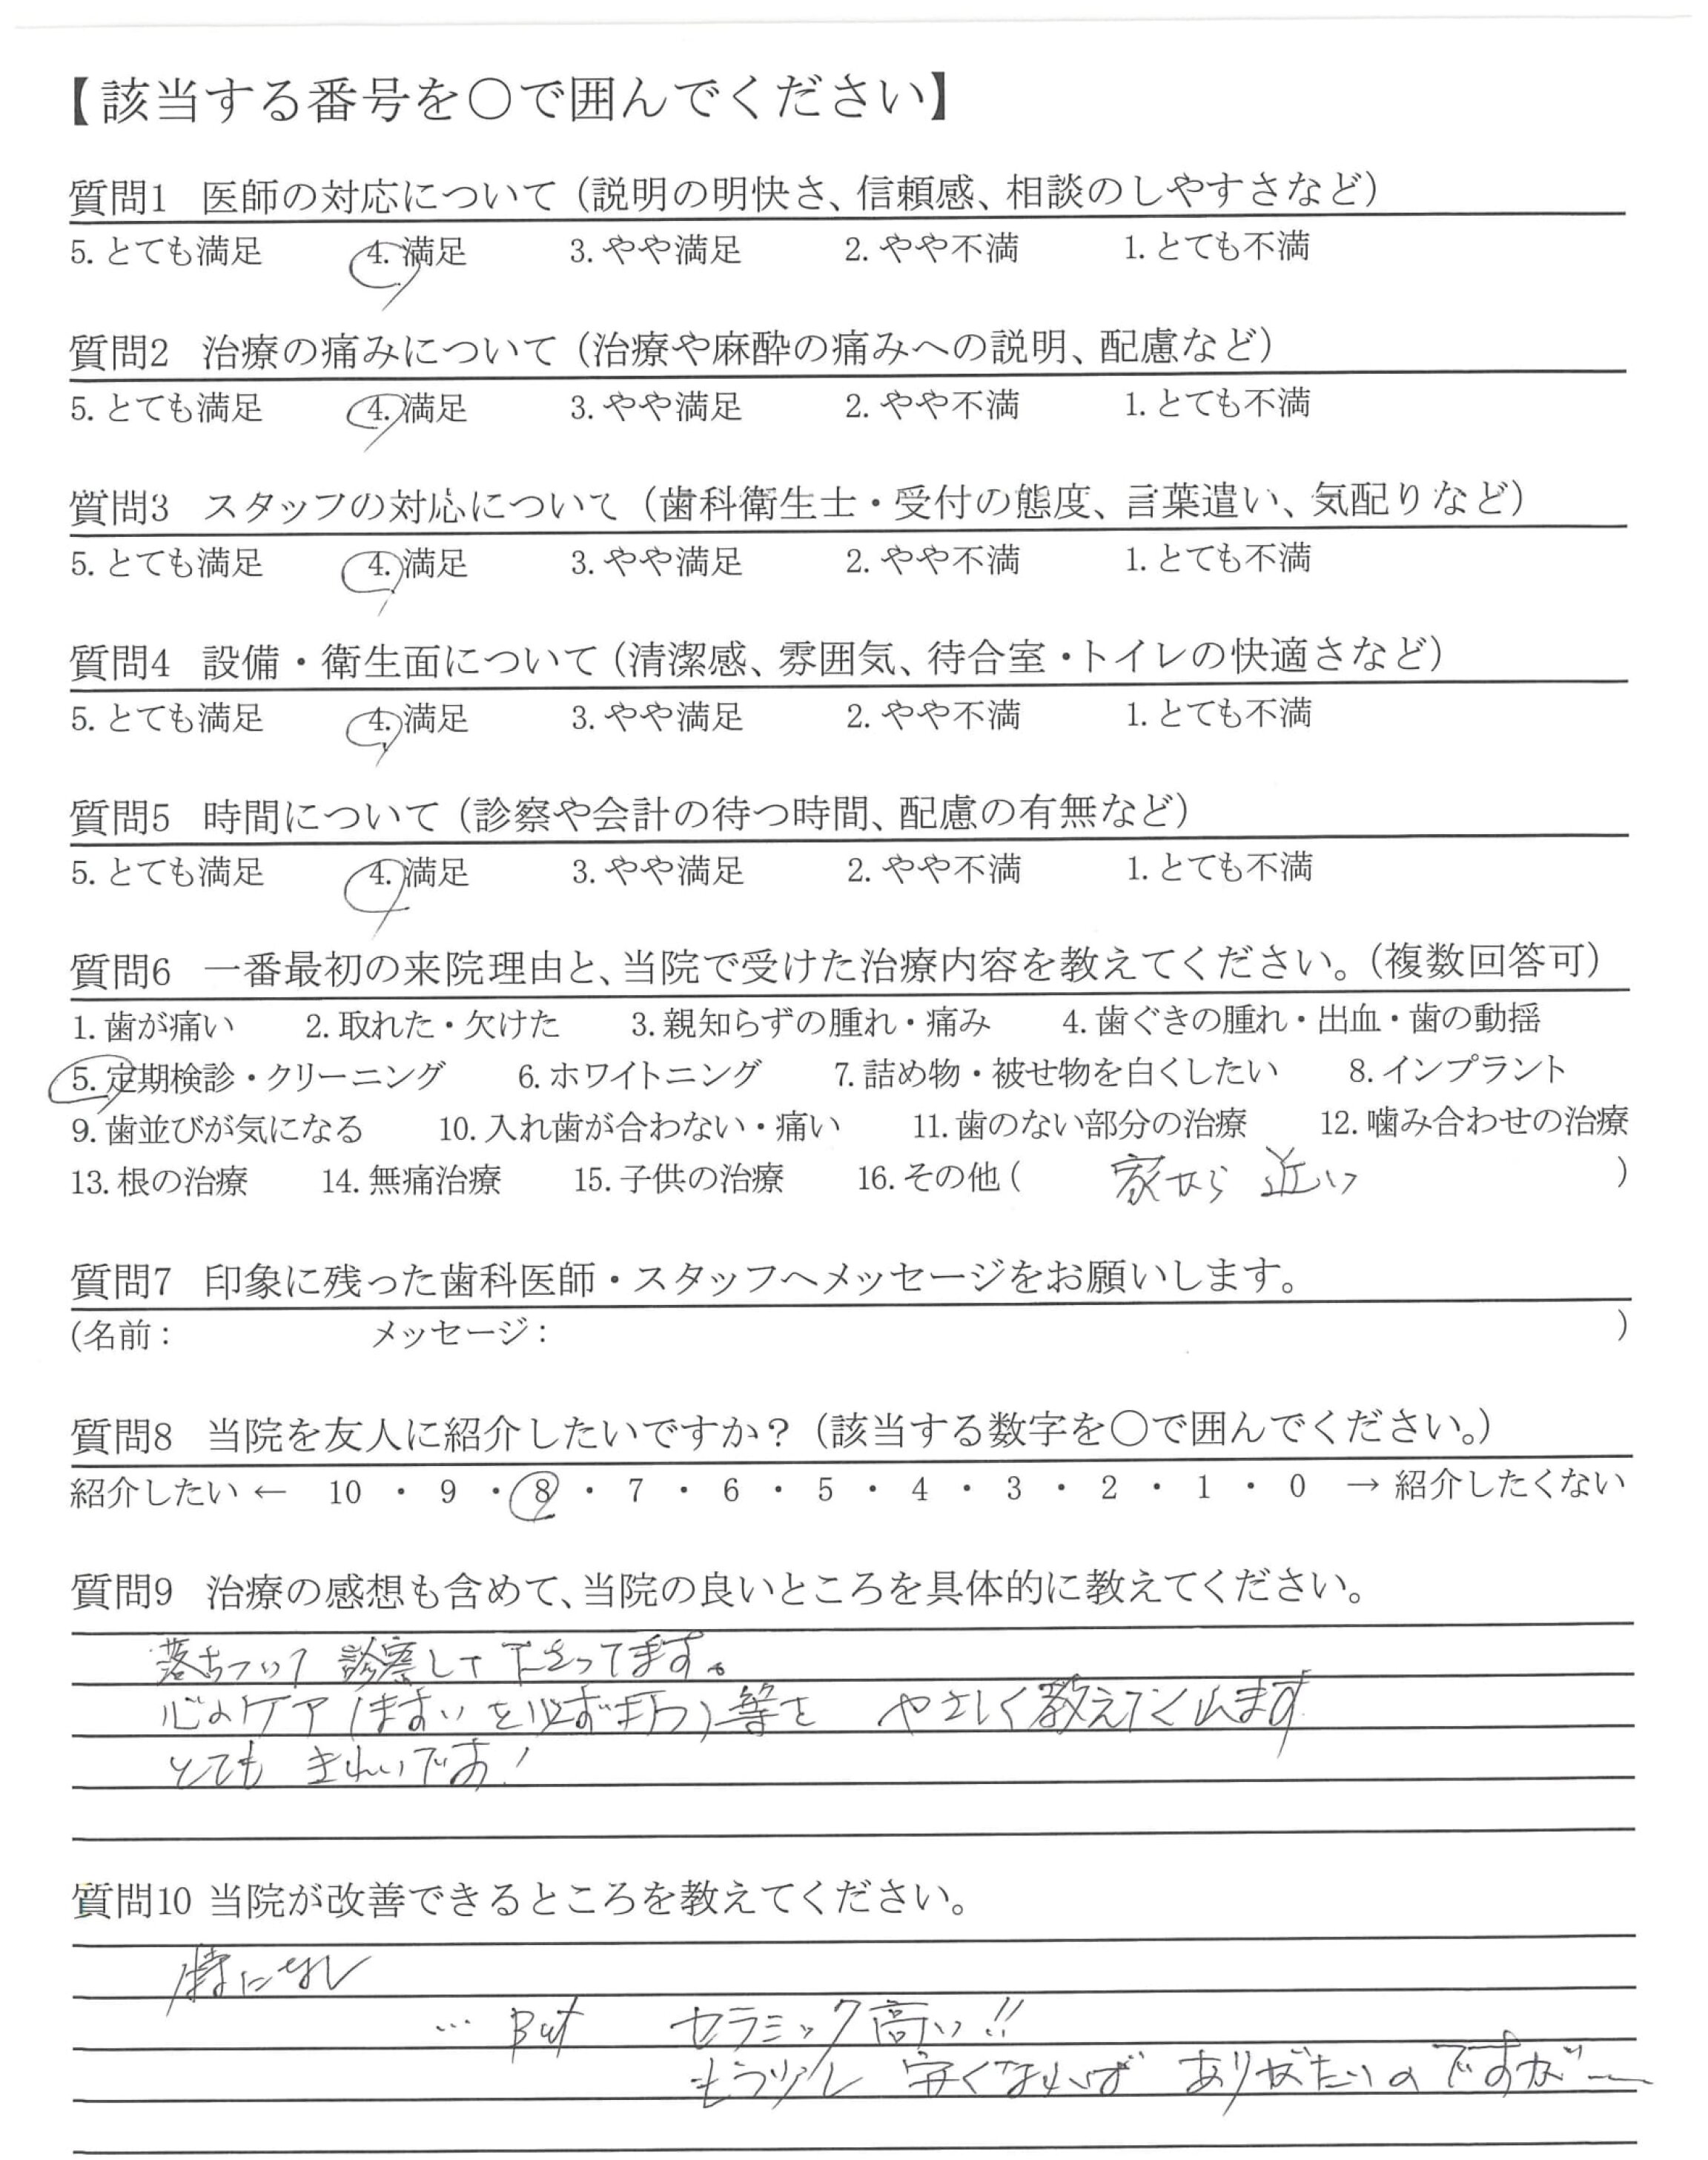 【該当する番号を○で囲んでください】
質問1 医師の対応について（説明の明快さ、信頼感、相談のしやすさなど）
5. とても満足 4. 満足 3. やや満足 2. やや不満 1. とても不満
質問2 治療の痛みについて（治療や麻酔の痛みへの説明、配慮など）
5. とても満足 4. 満足 3. やや満足 2. やや不満 1. とても不満
質問3 スタッフの対応について（歯科衛生士・受付の態度、言葉遣い、気配りなど）
5. とても満足 4. 満足 3. やや満足 2. やや不満 1. とても不満
質問4 設備・衛生面について（清潔感、雰囲気、待合室・トイレの快適さなど）
5. とても満足 4. 満足 3. やや満足 2. やや不満 1. とても不満
質問5 時間について（診察や会計の待つ時間、配慮の有無など）
5. とても満足 4. 満足 3. やや満足 2. やや不満 1. とても不満
質問6 一番最初の来院理由と、当院で受けた治療内容を教えてください。（複数回答可）
1. 歯が痛い 2. 取れた・欠けた 3. 親知らずの腫れ・痛み 4. 歯ぐきの腫れ・出血・歯の動揺
5. 定期検診・クリーニング 6. ホワイトニング 7. 詰め物・被せ物を白くしたい 8. インプラント
9. 歯並びが気になる 10. 入れ歯が合わない・痛い 11. 歯のない部分の治療 12. 噛み合わせの治療
13. 根の治療 14. 無痛治療 15. 子供の治療 16. その他（ 家から 近い ）
質問7 印象に残った歯科医師・スタッフへメッセージをお願いします。
（名前： メッセージ： ）
質問8 当院を友人に紹介したいですか？（該当する数字を○で囲んでください。）
紹介したい ← 10 ・ 9 ・ 8 ・ 7 ・ 6 ・ 5 ・ 4 ・ 3 ・ 2 ・ 1 ・ 0 → 紹介したくない
質問9 治療の感想も含めて、当院の良いところを具体的に教えてください。
落ちついて 診察して 下さってます。
心のケア（ますいを必ず打つ）等を やさしく教えてくれます
とても きれいです！
質問10 当院が改善できるところを教えてください。
特になし
… But セラミック高い!!
もう少し 安くなれば ありがたいのですが〜